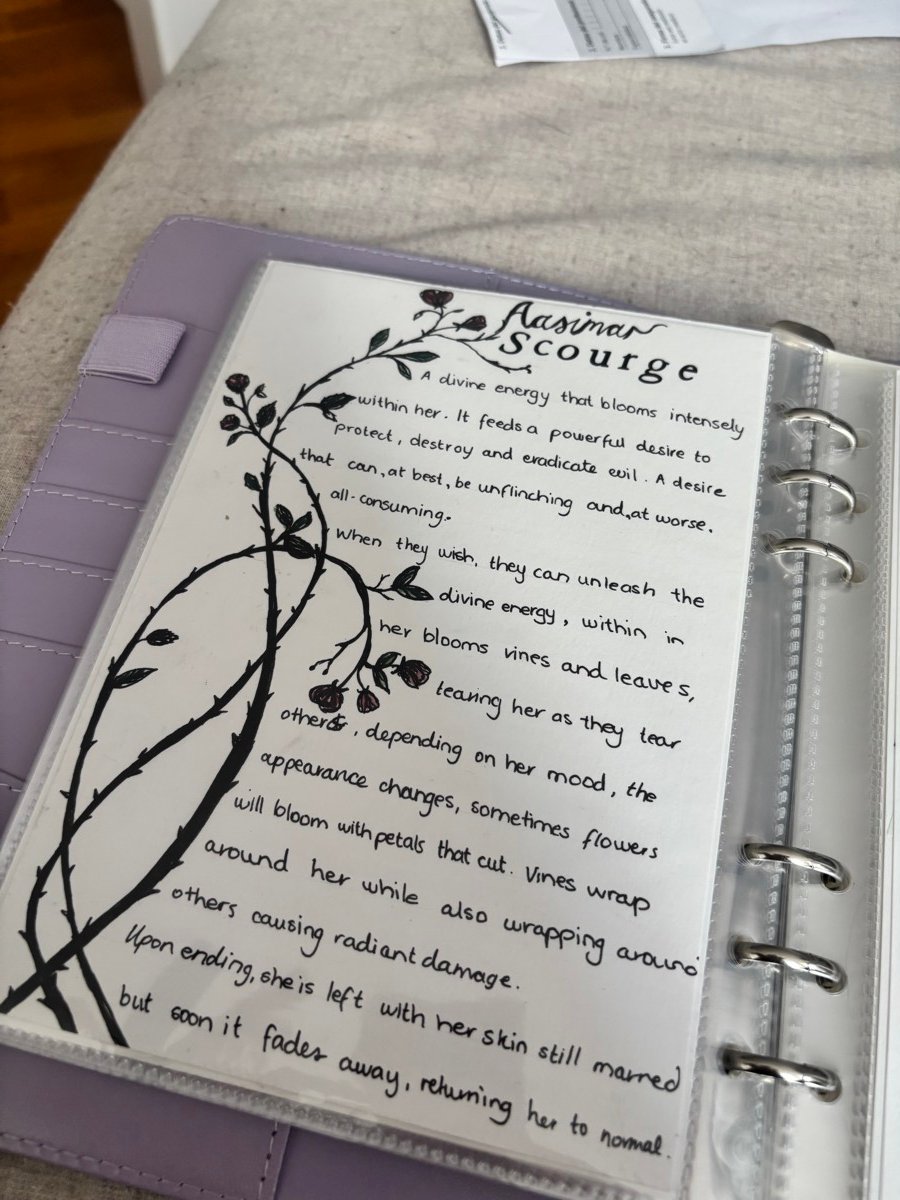 Aasimar
Scourge
A divine energy that blooms intensely
within her. It feeds a powerful desire to
protect, destroy and eradicate evil. A desire
that can, at best, be unflinching and, at worse.
all-consuming.
When they wish, they can unleash the
divine energy, within in
her blooms vines and leaves,
tearing her as they tear
others, depending on her mood, the
appearance changes, sometimes flowers
will bloom with petals that cut. Vines wrap
around her while also wrapping around
others causing radiant damage.
Upon ending, she is left with her skin still marred
but soon it fades away, returning her to normal.